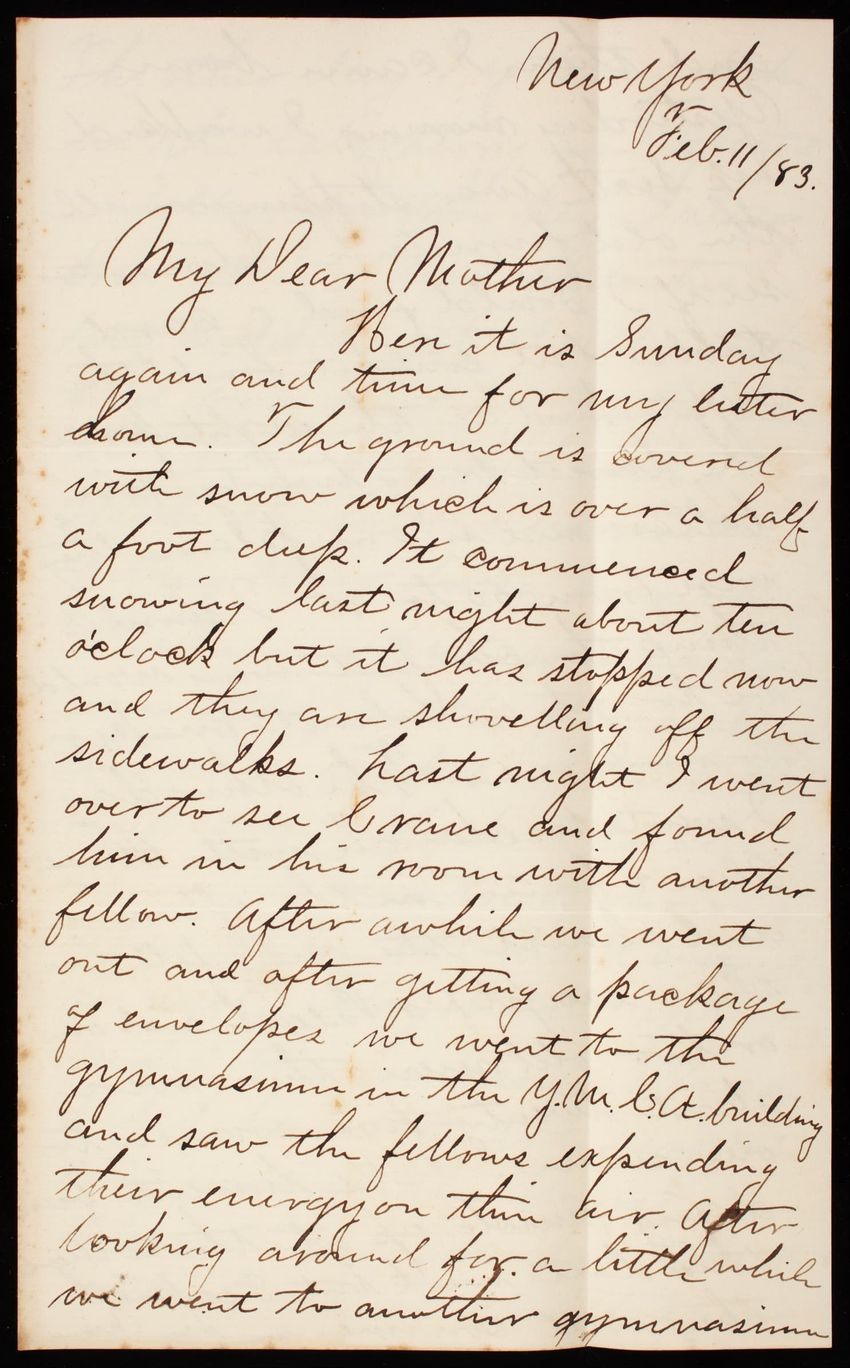 New York
Feb. 11/83.
My Dear Mother
Here it is Sunday
again and time for my letter
home. The ground is covered
with snow which is over a half
a foot deep. It commenced
snowing last night about ten
o'clock but it has stopped now
and they are shovelling off the
sidewalks. Last night I went
over to see Crane and found
him in his room with another
fellow. After awhile we went
out and after getting a package
of envelopes we went to the
gymnasium in the Y.M.C.A. building
and saw the fellows expending
their energy on thin air. After
looking around for a little while
we went to another gymnasium